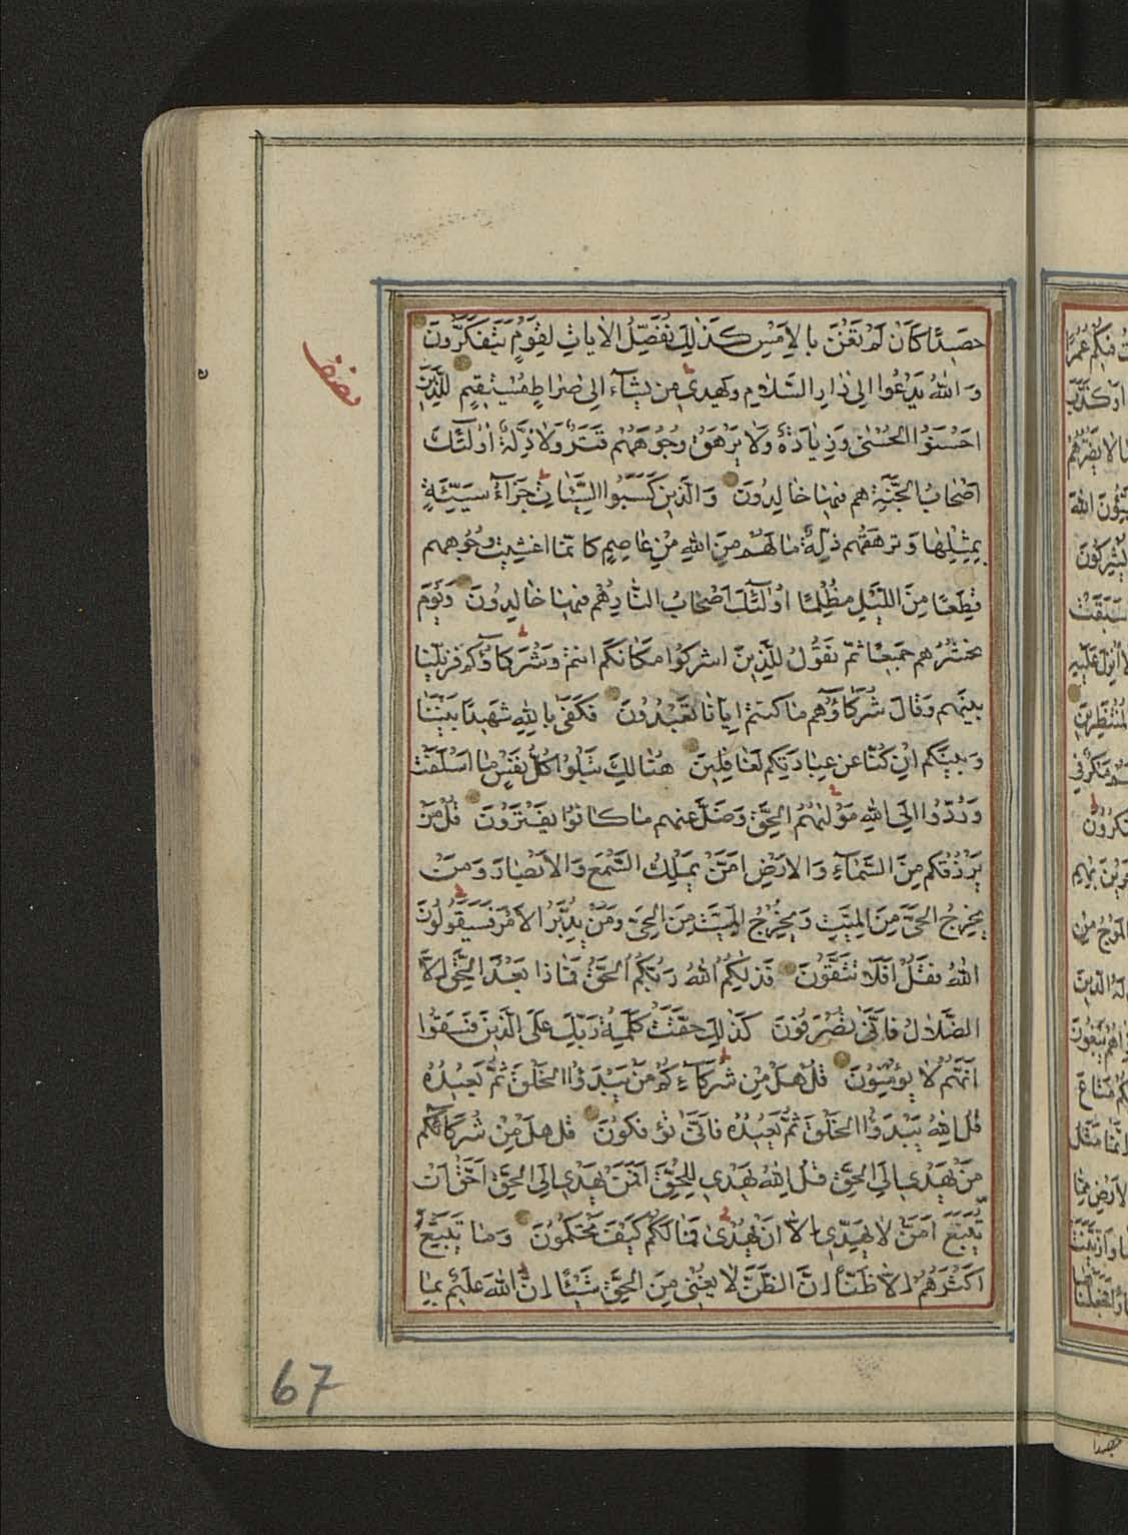 حَصِيدًا كَاَنْ لَمْ تَغْنَ بِالْاَمْسِ كَذٰلِكَ نُفَصِّلُ الْاٰيَاتِ لِقَوْمٍ يَتَفَكَّرُونَ
نصف
وَاللّٰهُ يَدْعُوا اِلٰى دَارِ السَّلَامِ وَيَهْدِي مَنْ يَشَآءُ اِلٰى صِرَاطٍ مُسْتَقِيمٍ لِلَّذِينَ
اَحْسَنُوا الْحُسْنٰى وَزِيَادَةٌ وَلَا يَرْهَقُ وُجُوهَهُمْ قَتَرٌ وَلَا ذِلَّةٌ اُولٰٓئِكَ
اَصْحَابُ الْجَنَّةِ هُمْ فِيهَا خَالِدُونَ وَالَّذِينَ كَسَبُوا السَّيِّئَاتِ جَزَآءُ سَيِّئَةٍ
بِمِثْلِهَا وَتَرْهَقُهُمْ ذِلَّةٌ مَا لَهُمْ مِنَ اللّٰهِ مِنْ عَاصِمٍ كَاَنَّمَا اُغْشِيَتْ وُجُوهُهُمْ
قِطَعًا مِنَ اللَّيْلِ مُظْلِمًا اُولٰٓئِكَ اَصْحَابُ النَّارِ هُمْ فِيهَا خَالِدُونَ وَيَوْمَ
نَحْشُرُهُمْ جَمِيعًا ثُمَّ نَقُولُ لِلَّذِينَ اَشْرَكُوا مَكَانَكُمْ اَنْتُمْ وَشُرَكَاؤُكُمْ فَزَيَّلْنَا
بَيْنَهُمْ وَقَالَ شُرَكَاؤُهُمْ مَا كُنْتُمْ اِيَّانَا تَعْبُدُونَ فَكَفٰى بِاللّٰهِ شَهِيدًا بَيْنَنَا
وَبَيْنَكُمْ اِنْ كُنَّا عَنْ عِبَادَتِكُمْ لَغَافِلِينَ هُنَالِكَ تَبْلُوا كُلُّ نَفْسٍ مَا اَسْلَفَتْ
وَرُدُّوا اِلَى اللّٰهِ مَوْلٰيهُمُ الْحَقِّ وَضَلَّ عَنْهُمْ مَا كَانُوا يَفْتَرُونَ قُلْ مَنْ
يَرْزُقُكُمْ مِنَ السَّمَآءِ وَالْاَرْضِ اَمَّنْ يَمْلِكُ السَّمْعَ وَالْاَبْصَارَ وَمَنْ
يُخْرِجُ الْحَيَّ مِنَ الْمَيِّتِ وَيُخْرِجُ الْمَيِّتَ مِنَ الْحَيِّ وَمَنْ يُدَبِّرُ الْاَمْرَ فَسَيَقُولُونَ
اللّٰهُ فَقُلْ اَفَلَا تَتَّقُونَ فَذٰلِكُمُ اللّٰهُ رَبُّكُمُ الْحَقُّ فَمَاذَا بَعْدَ الْحَقِّ اِلَّا
الضَّلَالُ فَاَنّٰى تُصْرَفُونَ كَذٰلِكَ حَقَّتْ كَلِمَةُ رَبِّكَ عَلَى الَّذِينَ فَسَقُوا
اَنَّهُمْ لَا يُؤْمِنُونَ قُلْ هَلْ مِنْ شُرَكَآئِكُمْ مَنْ يَبْدَؤُا الْخَلْقَ ثُمَّ يُعِيدُهُ
قُلِ اللّٰهُ يَبْدَؤُا الْخَلْقَ ثُمَّ يُعِيدُهُ فَاَنّٰى تُؤْفَكُونَ قُلْ هَلْ مِنْ شُرَكَآئِكُمْ
مَنْ يَهْدِي اِلَى الْحَقِّ قُلِ اللّٰهُ يَهْدِي لِلْحَقِّ اَفَمَنْ يَهْدِي اِلَى الْحَقِّ اَحَقُّ اَنْ
يُتَّبَعَ اَمَّنْ لَا يَهِدِّي اِلَّا اَنْ يُهْدٰى فَمَا لَكُمْ كَيْفَ تَحْكُمُونَ وَمَا يَتَّبِعُ
اَكْثَرُهُمْ اِلَّا ظَنًّا اِنَّ الظَّنَّ لَا يُغْنِي مِنَ الْحَقِّ شَيْئًا اِنَّ اللّٰهَ عَلِيمٌ بِمَا
67